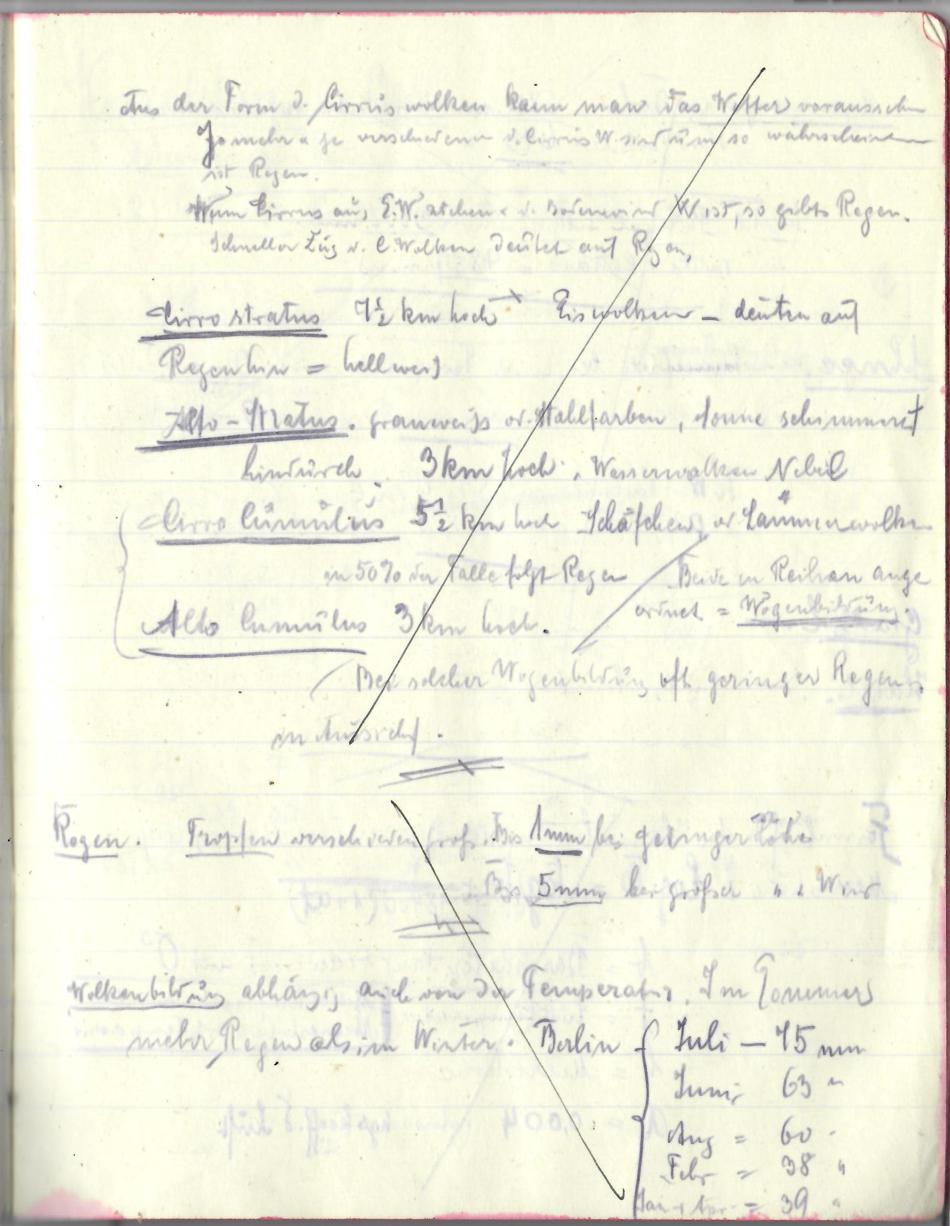 Aus der Form d. Cirrus wolken kann man das Wetter voraussehen
Je mehr u je verschiedener d. Cirrus W. sind um so wahrscheinl
ist Regen.
Wenn Cirrus aus S.W. ziehen u d. Bodenwind W ist, so gibts Regen.
Schneller Zug d. C. Wolken deutet auf Regen,
Cirro stratus 7½ km hoch Eiswolken – deuten auf
Regen hin = hellweiß
Alto - Stratus. grauweiss od. Stahlfarben, Sonne schimmert
hindurch. 3 km hoch. Wasserwolken Nebel
Cirro Cümülüs 5½ km hoch Schäfchen od Lämmerwolken
in 50% der Falle folgt Regen Beide in Reihen ange
ordnet = Wogenbildung.
Alto Cumülus 3 km hoch.
Bei solcher Wogenbildung oft geringer Regen
in Aussicht.
Regen. Tropfen verschieden groß. Bis 1 mm bei geringer Höhe
Bis 5 mm bei großer " u. Wind
Wolkenbildung abhängig auch von der Temperatur. Im Sommer
mehr Regen als im Winter. Berlin { Juli – 75 mm
Juni, 63 "
Aug = 60 "
Febr = 38 "
Jan u Apr = 39 "